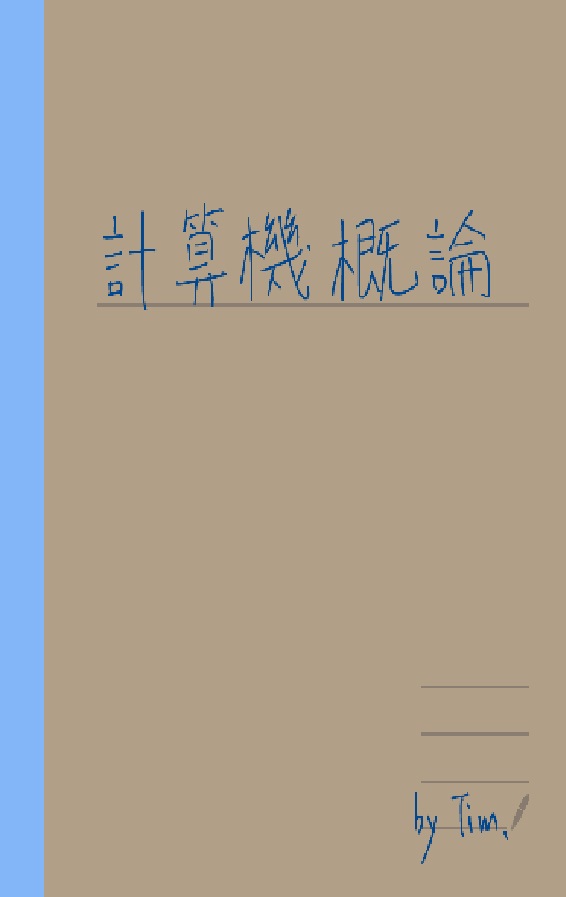 計算機概論
by Tim.